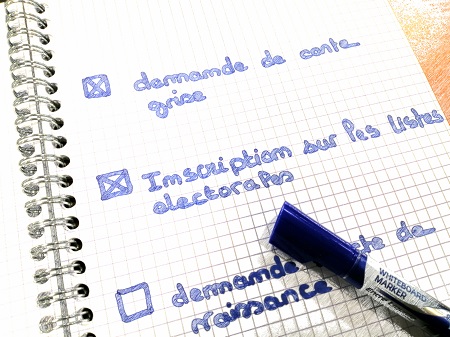 demande de carte
grise
Inscription sur les listes
electorales
demande de
naissance
WHITEBOARD
MARKER